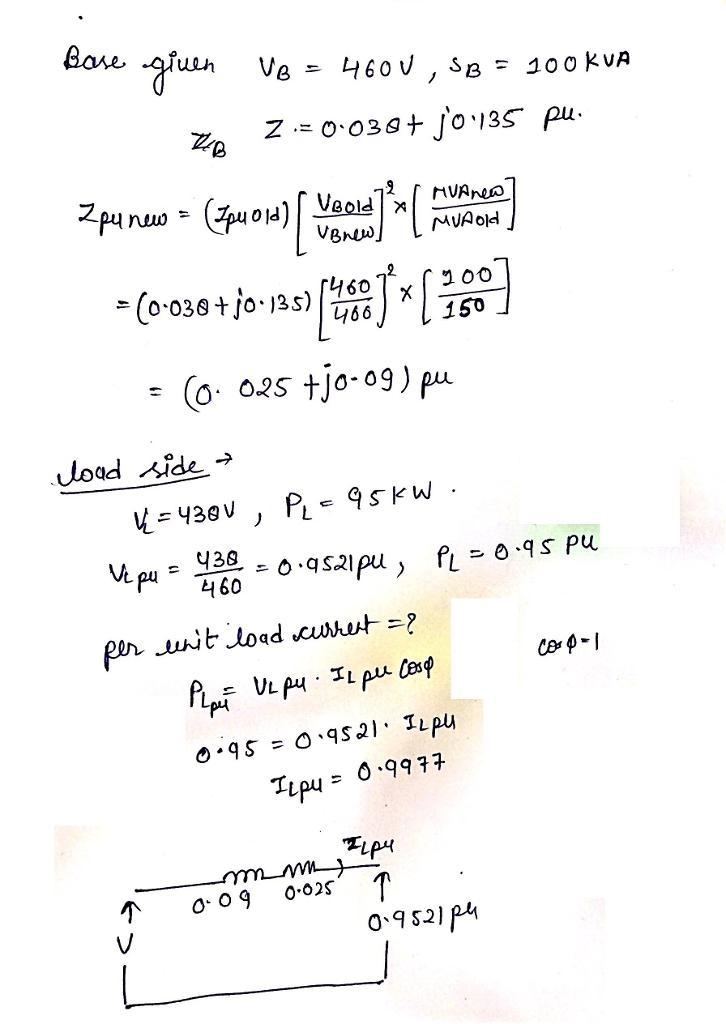 Base given VB = 460V, SB = 100KVA
ZB Z = 0.038 + j0.135 pu.
Zpu new = (Zpu old) [VBold/VBnew]² × [MVAnew/MVAold]
= (0.038 + j0.135) [460/460]² × [100/150]
= (0.025 + j0.09) pu
load side →
VL = 438V, PL = 95KW.
VL pu = 438/460 = 0.9521pu, PL = 0.95 pu
per unit load current = ? cosφ = 1
PLpu = VLpu · ILpu cosφ
0.95 = 0.9521 · ILpu
ILpu = 0.9977
ILpu
0.09 0.025
V 0.9521 pu